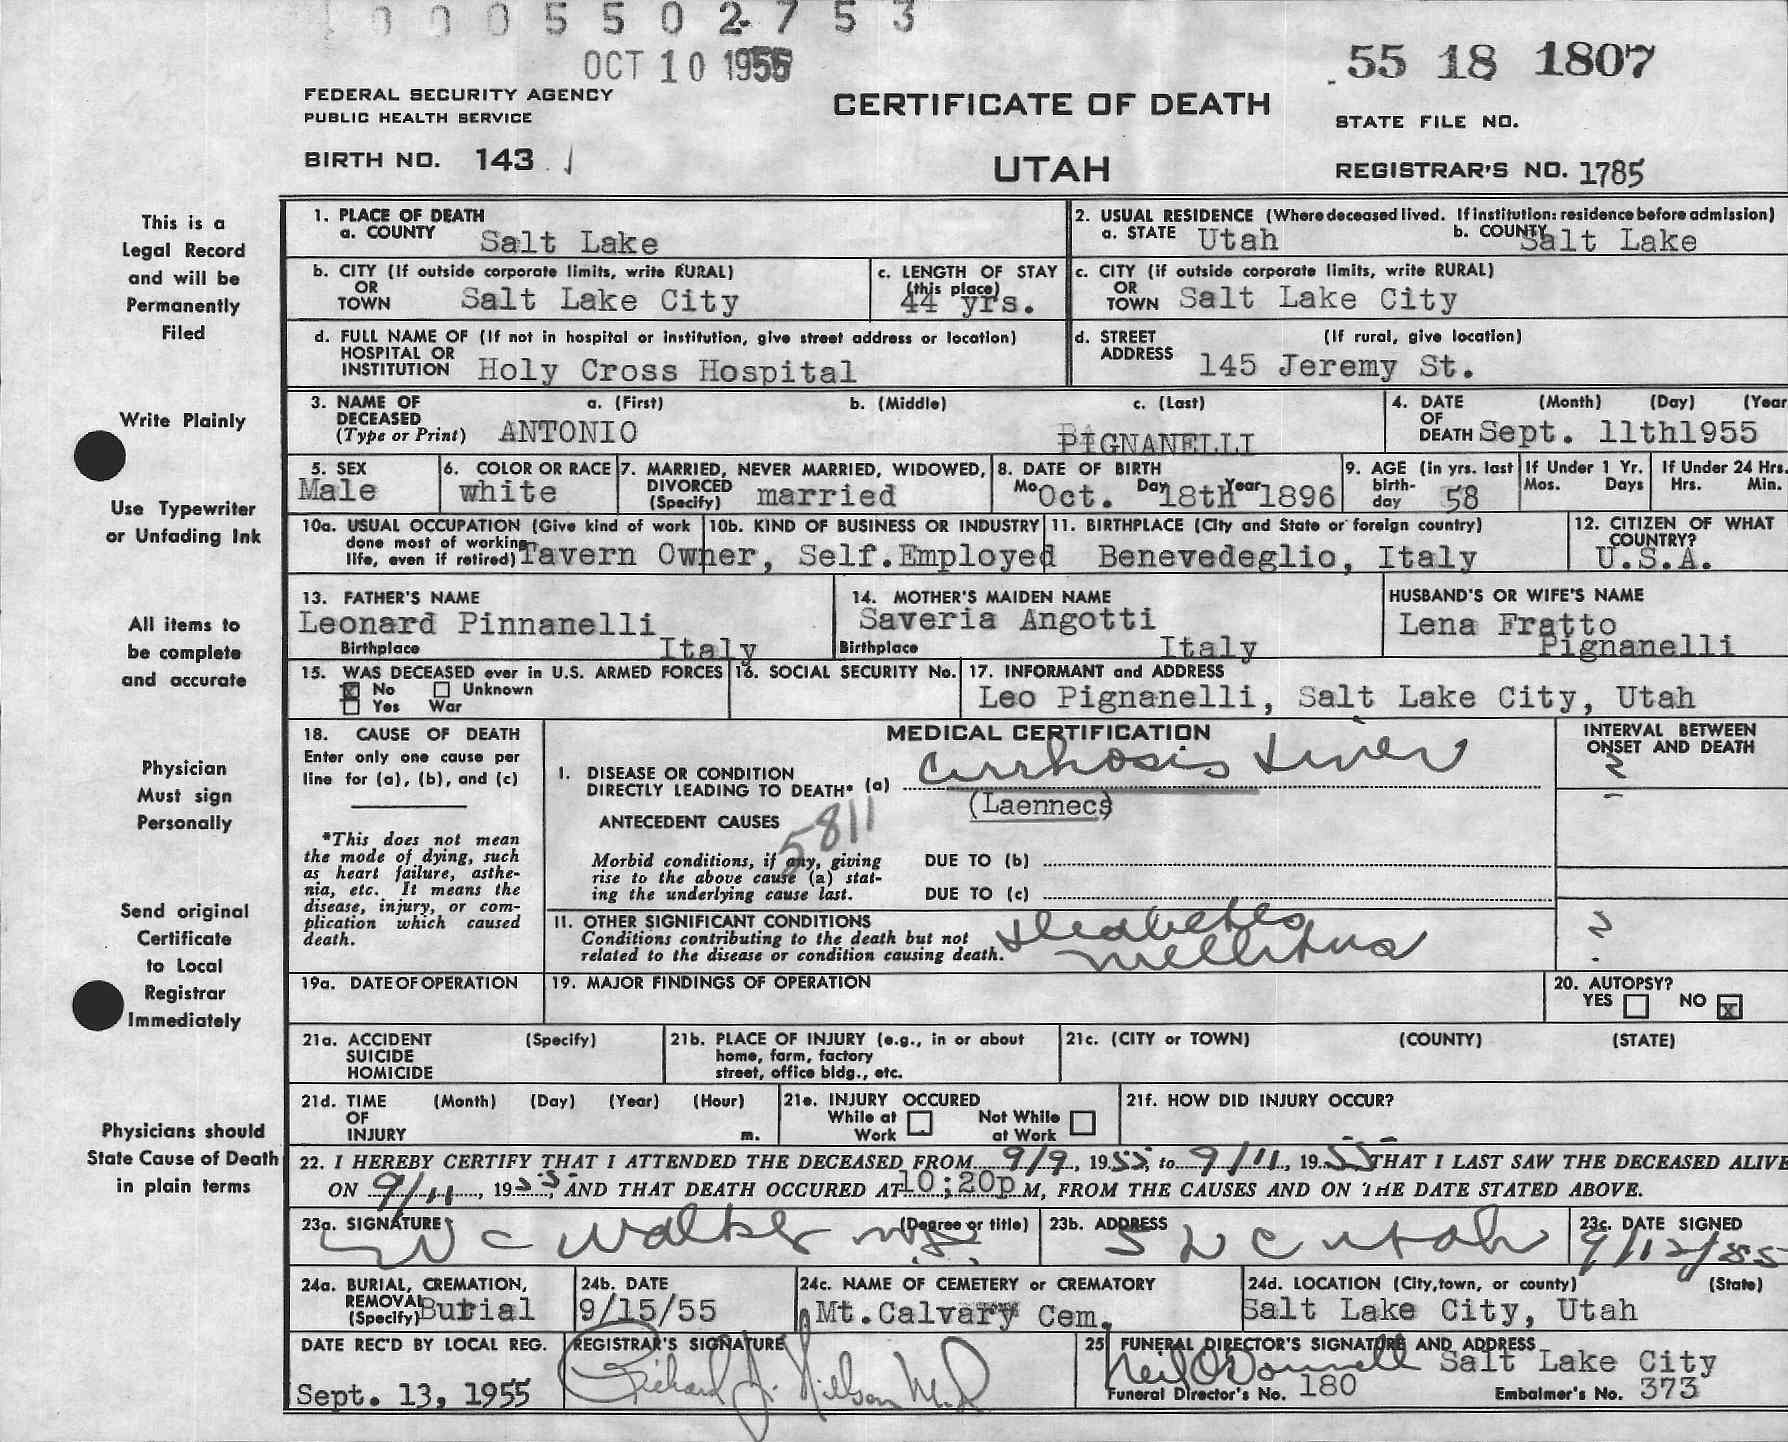 0 0 0 5 5 0 2 7 5 3
OCT 10 1955
55 18 1807
FEDERAL SECURITY AGENCY
PUBLIC HEALTH SERVICE
BIRTH NO. 143
CERTIFICATE OF DEATH
UTAH
STATE FILE NO.
REGISTRAR'S NO. 1785
This is a
Legal Record
and will be
Permanently
Filed
Write Plainly
Use Typewriter
or Unfading Ink
All items to
be complete
and accurate
Physician
Must sign
Personally
Send original
Certificate
to Local
Registrar
Immediately
Physicians should
State Cause of Death
in plain terms
1. PLACE OF DEATH
a. COUNTY Salt Lake
2. USUAL RESIDENCE (Where deceased lived. If institution: residence before admission)
a. STATE Utah b. COUNTY Salt Lake
b. CITY (If outside corporate limits, write RURAL)
OR
TOWN Salt Lake City
c. LENGTH OF STAY
(this place)
44 yrs.
c. CITY (if outside corporate limits, write RURAL)
OR
TOWN Salt Lake City
d. FULL NAME OF (If not in hospital or institution, give street address or location)
HOSPITAL OR
INSTITUTION Holy Cross Hospital
d. STREET (If rural, give location)
ADDRESS 145 Jeremy St.
3. NAME OF a. (First) b. (Middle) c. (Last)
DECEASED
(Type or Print) ANTONIO PIGNANELLI
4. DATE (Month) (Day) (Year
OF
DEATH Sept. 11th1955
5. SEX
Male
6. COLOR OR RACE
white
7. MARRIED, NEVER MARRIED, WIDOWED,
DIVORCED
(Specify) married
8. DATE OF BIRTH
Mo Oct. Day 18th Year 1896
9. AGE (in yrs. last
birth-
day 58
If Under 1 Yr.
Mos. Days
If Under 24 Hrs.
Hrs. Min.
10a. USUAL OCCUPATION (Give kind of work
done most of working
life, even if retired) Tavern Owner,
10b. KIND OF BUSINESS OR INDUSTRY
Self.Employed
11. BIRTHPLACE (City and State or foreign country)
Benevedeglio, Italy
12. CITIZEN OF WHAT
COUNTRY?
U.S.A.
13. FATHER'S NAME
Leonard Pinnanelli
Birthplace Italy
14. MOTHER'S MAIDEN NAME
Saveria Angotti
Birthplace Italy
HUSBAND'S OR WIFE'S NAME
Lena Fratto
Pignanelli
15. WAS DECEASED ever in U.S. ARMED FORCES
x No Unknown
Yes War
16. SOCIAL SECURITY No.
17. INFORMANT and ADDRESS
Leo Pignanelli, Salt Lake City, Utah
18. CAUSE OF DEATH
Enter only one cause per
line for (a), (b), and (c)
*This does not mean
the mode of dying, such
as heart failure, asthe-
nia, etc. It means the
disease, injury, or com-
plication which caused
death.
MEDICAL CERTIFICATION
I. DISEASE OR CONDITION
DIRECTLY LEADING TO DEATH* (a) Cirrhosis Liver
(Laennecs)
ANTECEDENT CAUSES
5811
Morbid conditions, if any, giving
rise to the above cause (a) stat-
ing the underlying cause last.
DUE TO (b)
DUE TO (c)
II. OTHER SIGNIFICANT CONDITIONS
Conditions contributing to the death but not
related to the disease or condition causing death.
Diabetes
mellitus
INTERVAL BETWEEN
ONSET AND DEATH
?
?
19a. DATE OF OPERATION
19. MAJOR FINDINGS OF OPERATION
20. AUTOPSY?
YES NO x
21a. ACCIDENT (Specify)
SUICIDE
HOMICIDE
21b. PLACE OF INJURY (e.g., in or about
home, farm, factory
street, office bldg., etc.
21c. (CITY or TOWN) (COUNTY) (STATE)
21d. TIME (Month) (Day) (Year) (Hour)
OF
INJURY m.
21e. INJURY OCCURED
While at Not While
Work at Work
21f. HOW DID INJURY OCCUR?
22. I HEREBY CERTIFY THAT I ATTENDED THE DECEASED FROM 9/9, 1955, to 9/11, 1955 THAT I LAST SAW THE DECEASED ALIVE
ON 9/11, 1955, AND THAT DEATH OCCURED AT 10;20p M, FROM THE CAUSES AND ON THE DATE STATED ABOVE.
23a. SIGNATURE (Degree or title)
W C Walker MD
23b. ADDRESS
S L C Utah
23c. DATE SIGNED
9/12/55
24a. BURIAL, CREMATION,
REMOVAL
(Specify) Burial
24b. DATE
9/15/55
24c. NAME OF CEMETERY or CREMATORY
Mt.Calvary Cem.
24d. LOCATION (City,town, or county) (State)
Salt Lake City, Utah
DATE REC'D BY LOCAL REG.
Sept. 13, 1955
REGISTRAR'S SIGNATURE
Richard J. Nillson M.D
25 FUNERAL DIRECTOR'S SIGNATURE AND ADDRESS
Neil O'Donnell Salt Lake City
Funeral Director's No. 180 Embalmer's No. 373